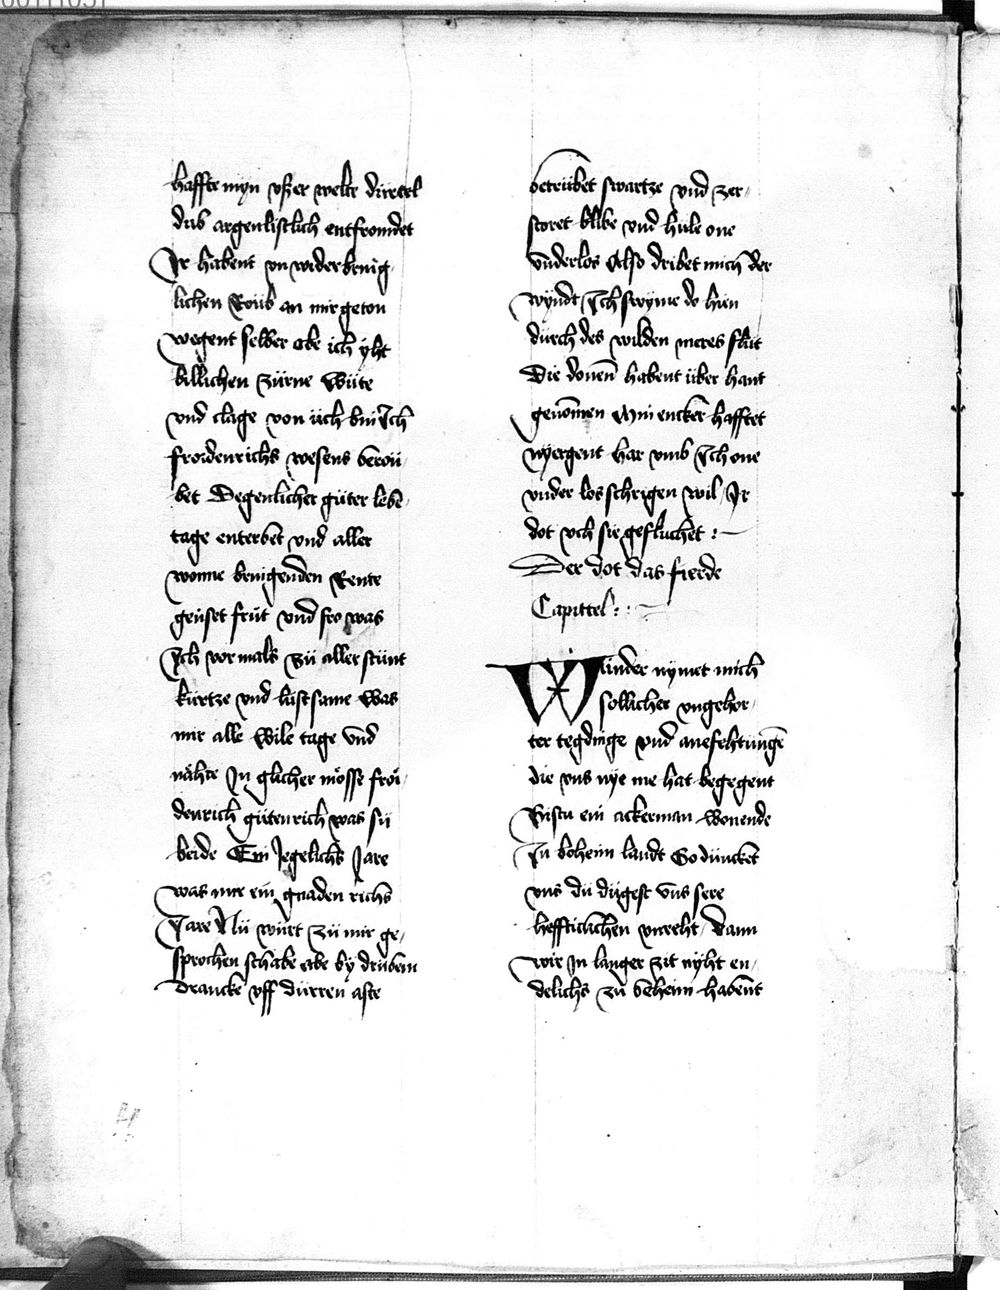 haffte myn vßer welte dirretel
dub argenlistlich entfromdet
Ir habent vn widerbring
lichen Roüb an mir geton
wegent selber abe ich yht
billichen zürne Wüte
vnd clage von üch bin Ich
froidenrichs wesens beroü
bet Degenlicher güter lebe
tage enterbet vnd aller
wonne bringenden Rente
geüset früt vnd fro was
Ich vormals Zü aller stünt
kürtze vnd lüstsame Was
mir alle Wile tage vnd
nähte In glicher mosse froi
denrich gütenrich was sü
beide Ein Jegelichs Jare
was mir ein gnaden richs
Jare Nü würt zü mir ge
sprochen schabe abe by drübem
drancke vff dürren aste
betrübet swartze vnd zer
storet blibe vnd hüle one
vnderlos Also dribet mich der
wyndt Ich swyme do hien
dürch des wilden meres flüt
Die donen habent über hant
genomen Min encker hafftet
nyergent har vmb Ich one
vnder los schrigen wil Ir
dot üch sie geflüchet :
Der dot das fierde
Capittel :
Wünder nymet mich
sollicher vngehor
ter tegdinge vnd anefehtunge
die vns nye me hat begegent
Bistu ein ackerman Wonende
In boheim landt So düncket
vns dü dügest vns sere
hefftichchen vnreht Dann
wir In langer zit nyht en
delichs zü beheim habent